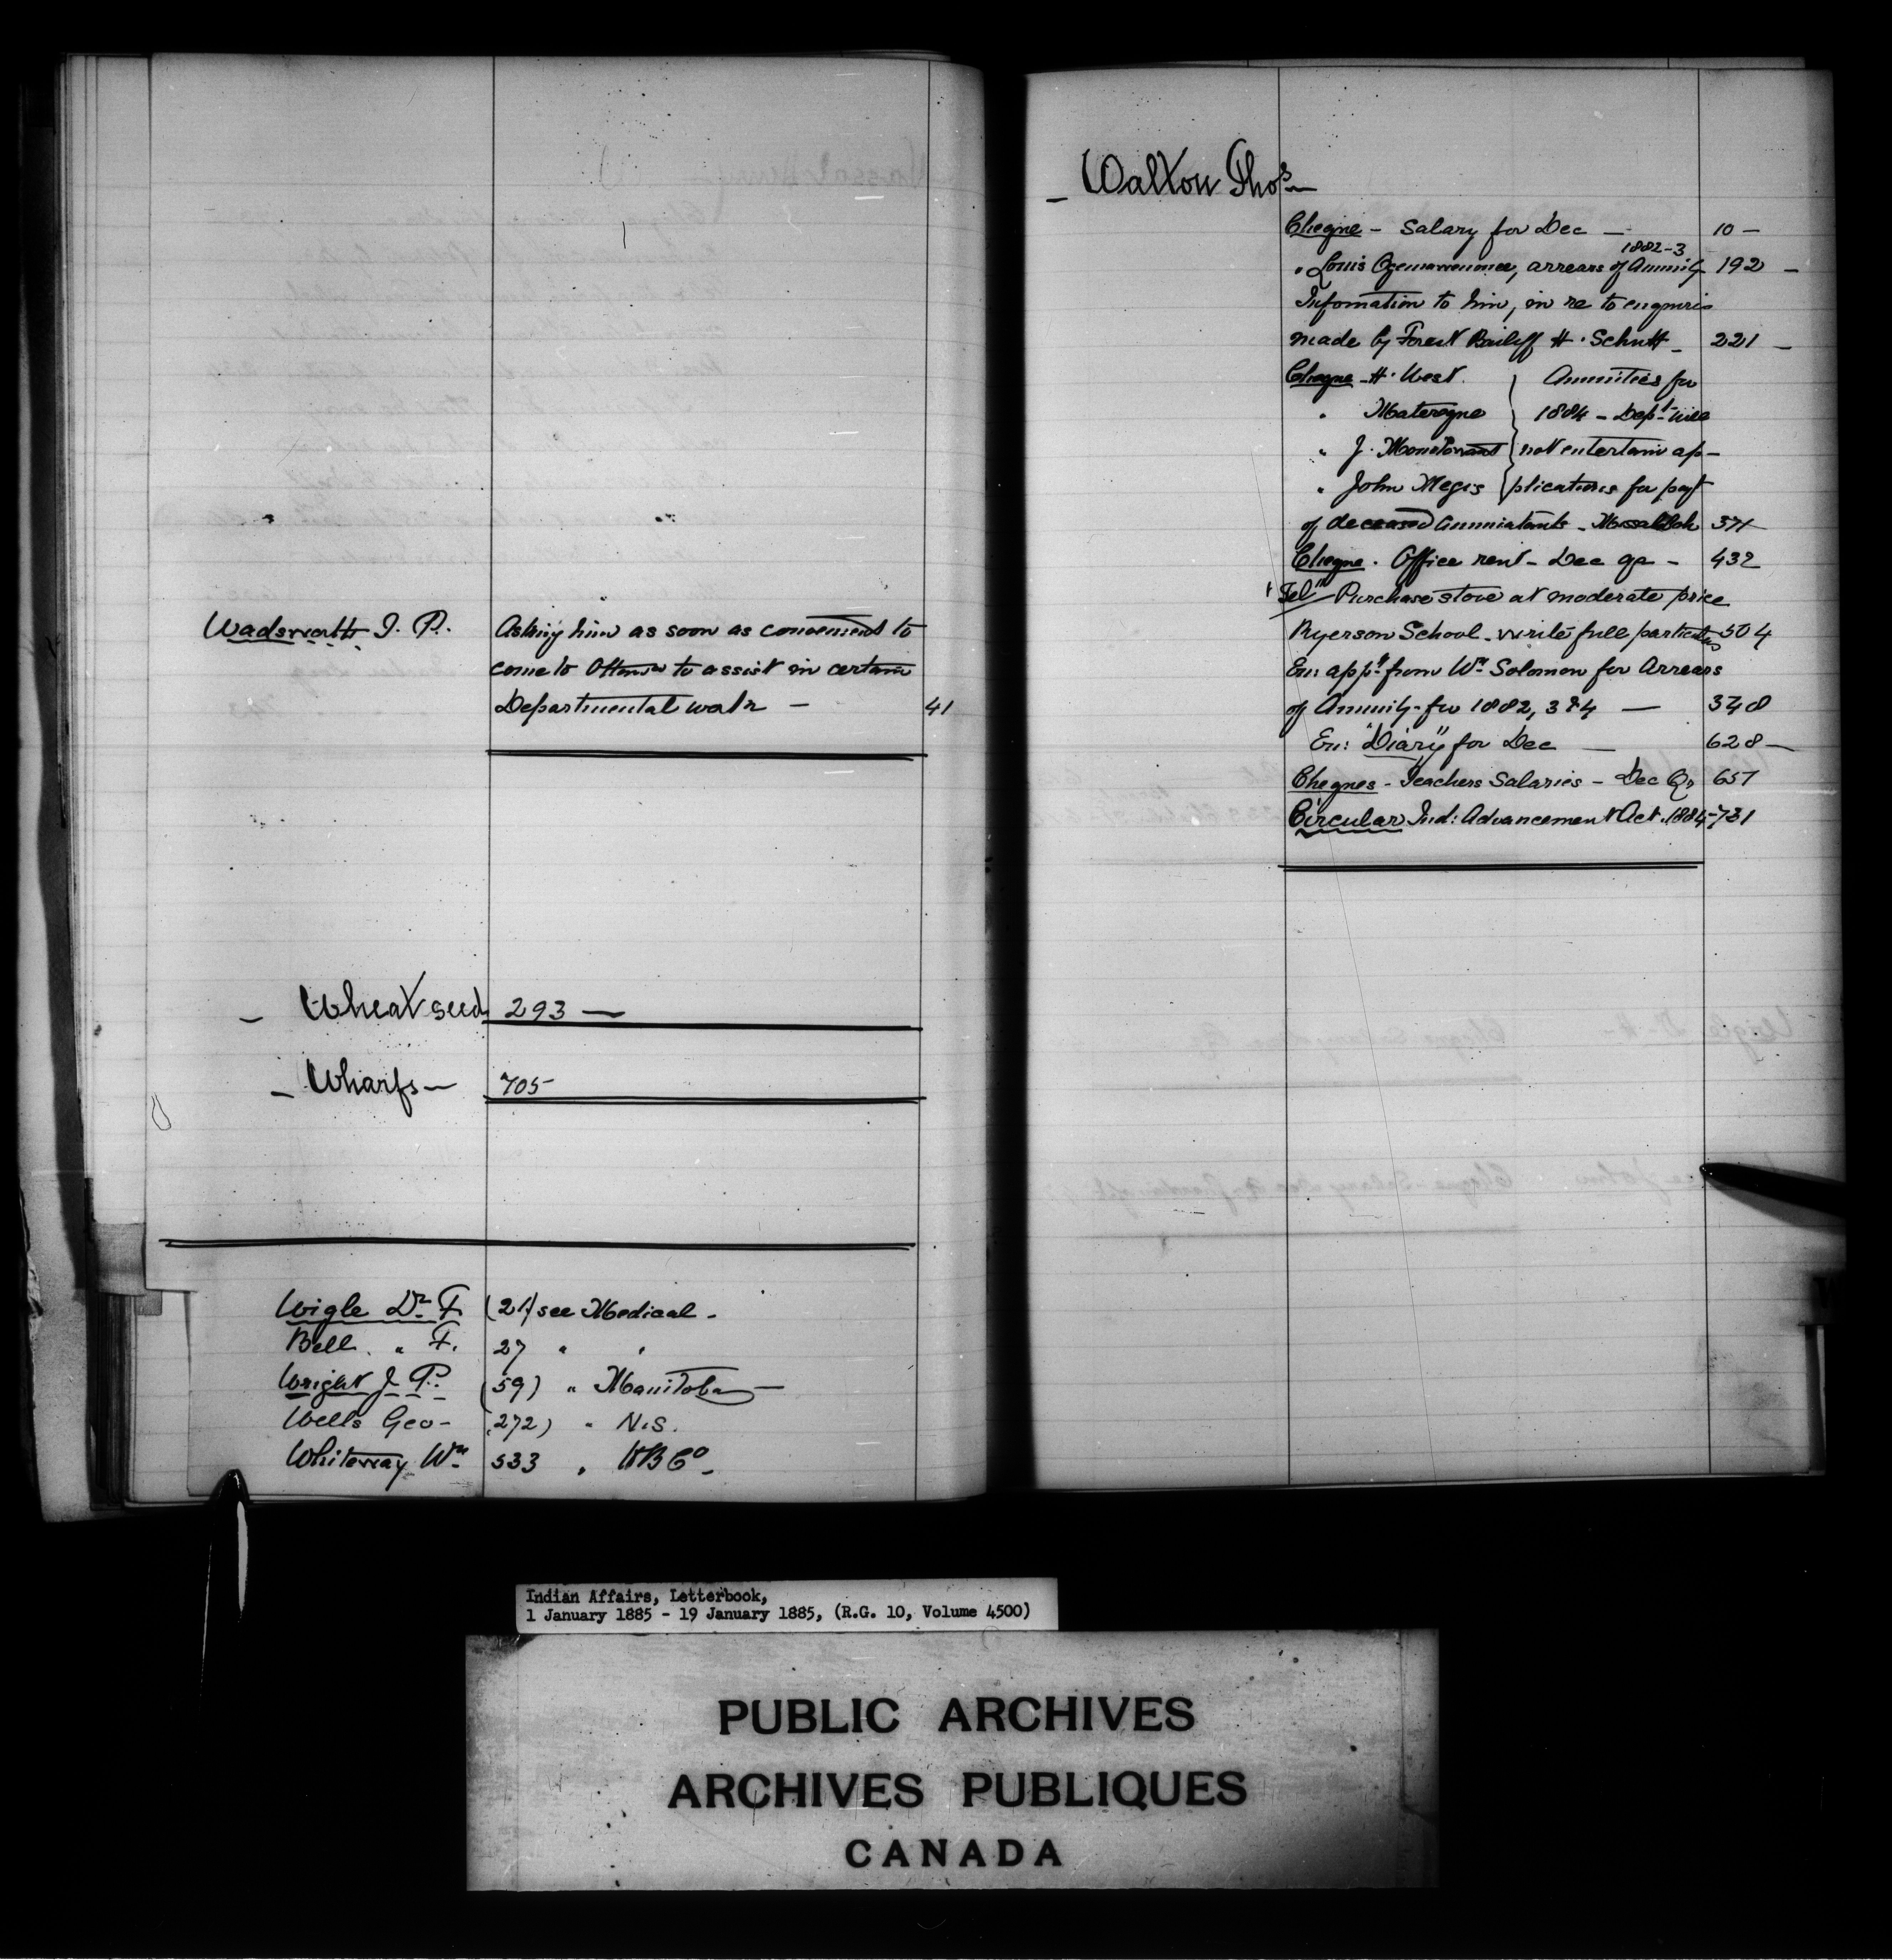 Wadsworth T. P. Asking him as soon as convenient to
come to Ottawa to assist in certain
Departmental work — 41
— Wheat seed 293 —
— Wharfs — 705
Wigle Dr. F. (21) see Medical -
Bell " F. 27 " "
Wright J. P. (59) " Manitoba —
Wells Geo - (272) " N.S.
Whiteway Wm 533 " HBCo -
— Walton Thos —
Cheque - Salary for Dec — 10 —
1882-3
" Louis arrears of Annuity 192 —
Information to him, in re to enquiries
made by Forest Bailiff H. Schutt - 221 —
Cheque - H. West. } Annuities for
" } 1884 - Dept will
" J. } not entertain ap-
" John Megis } plications for payt
of deceased Annuitants - 371
Cheque - Office rent - Dec qr - 432
"Tel" Purchase stove at moderate price
Ryerson School - write full particulars 504
En: appn from Wm Solomon for Arrears
of Annuity for 1882, 3 & 4 — 348
En: "Diary" for Dec — 628 —
Cheques - Teachers Salaries - Dec Qr 657
Circular Ind: Advancement Act. 1884 - 731
Indian Affairs, Letterbook,
1 January 1885 - 19 January 1885, (R.G. 10, Volume 4500)
PUBLIC ARCHIVES
ARCHIVES PUBLIQUES
CANADA